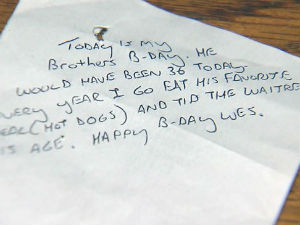 TODAY IS MY
BROTHERS B-DAY. HE
WOULD HAVE BEEN 36 TODAY.
EVERY YEAR I GO EAT HIS FAVORITE
MEAL (HOT DOGS) AND TIP THE WAITRE
IS AGE. HAPPY B-DAY WES.